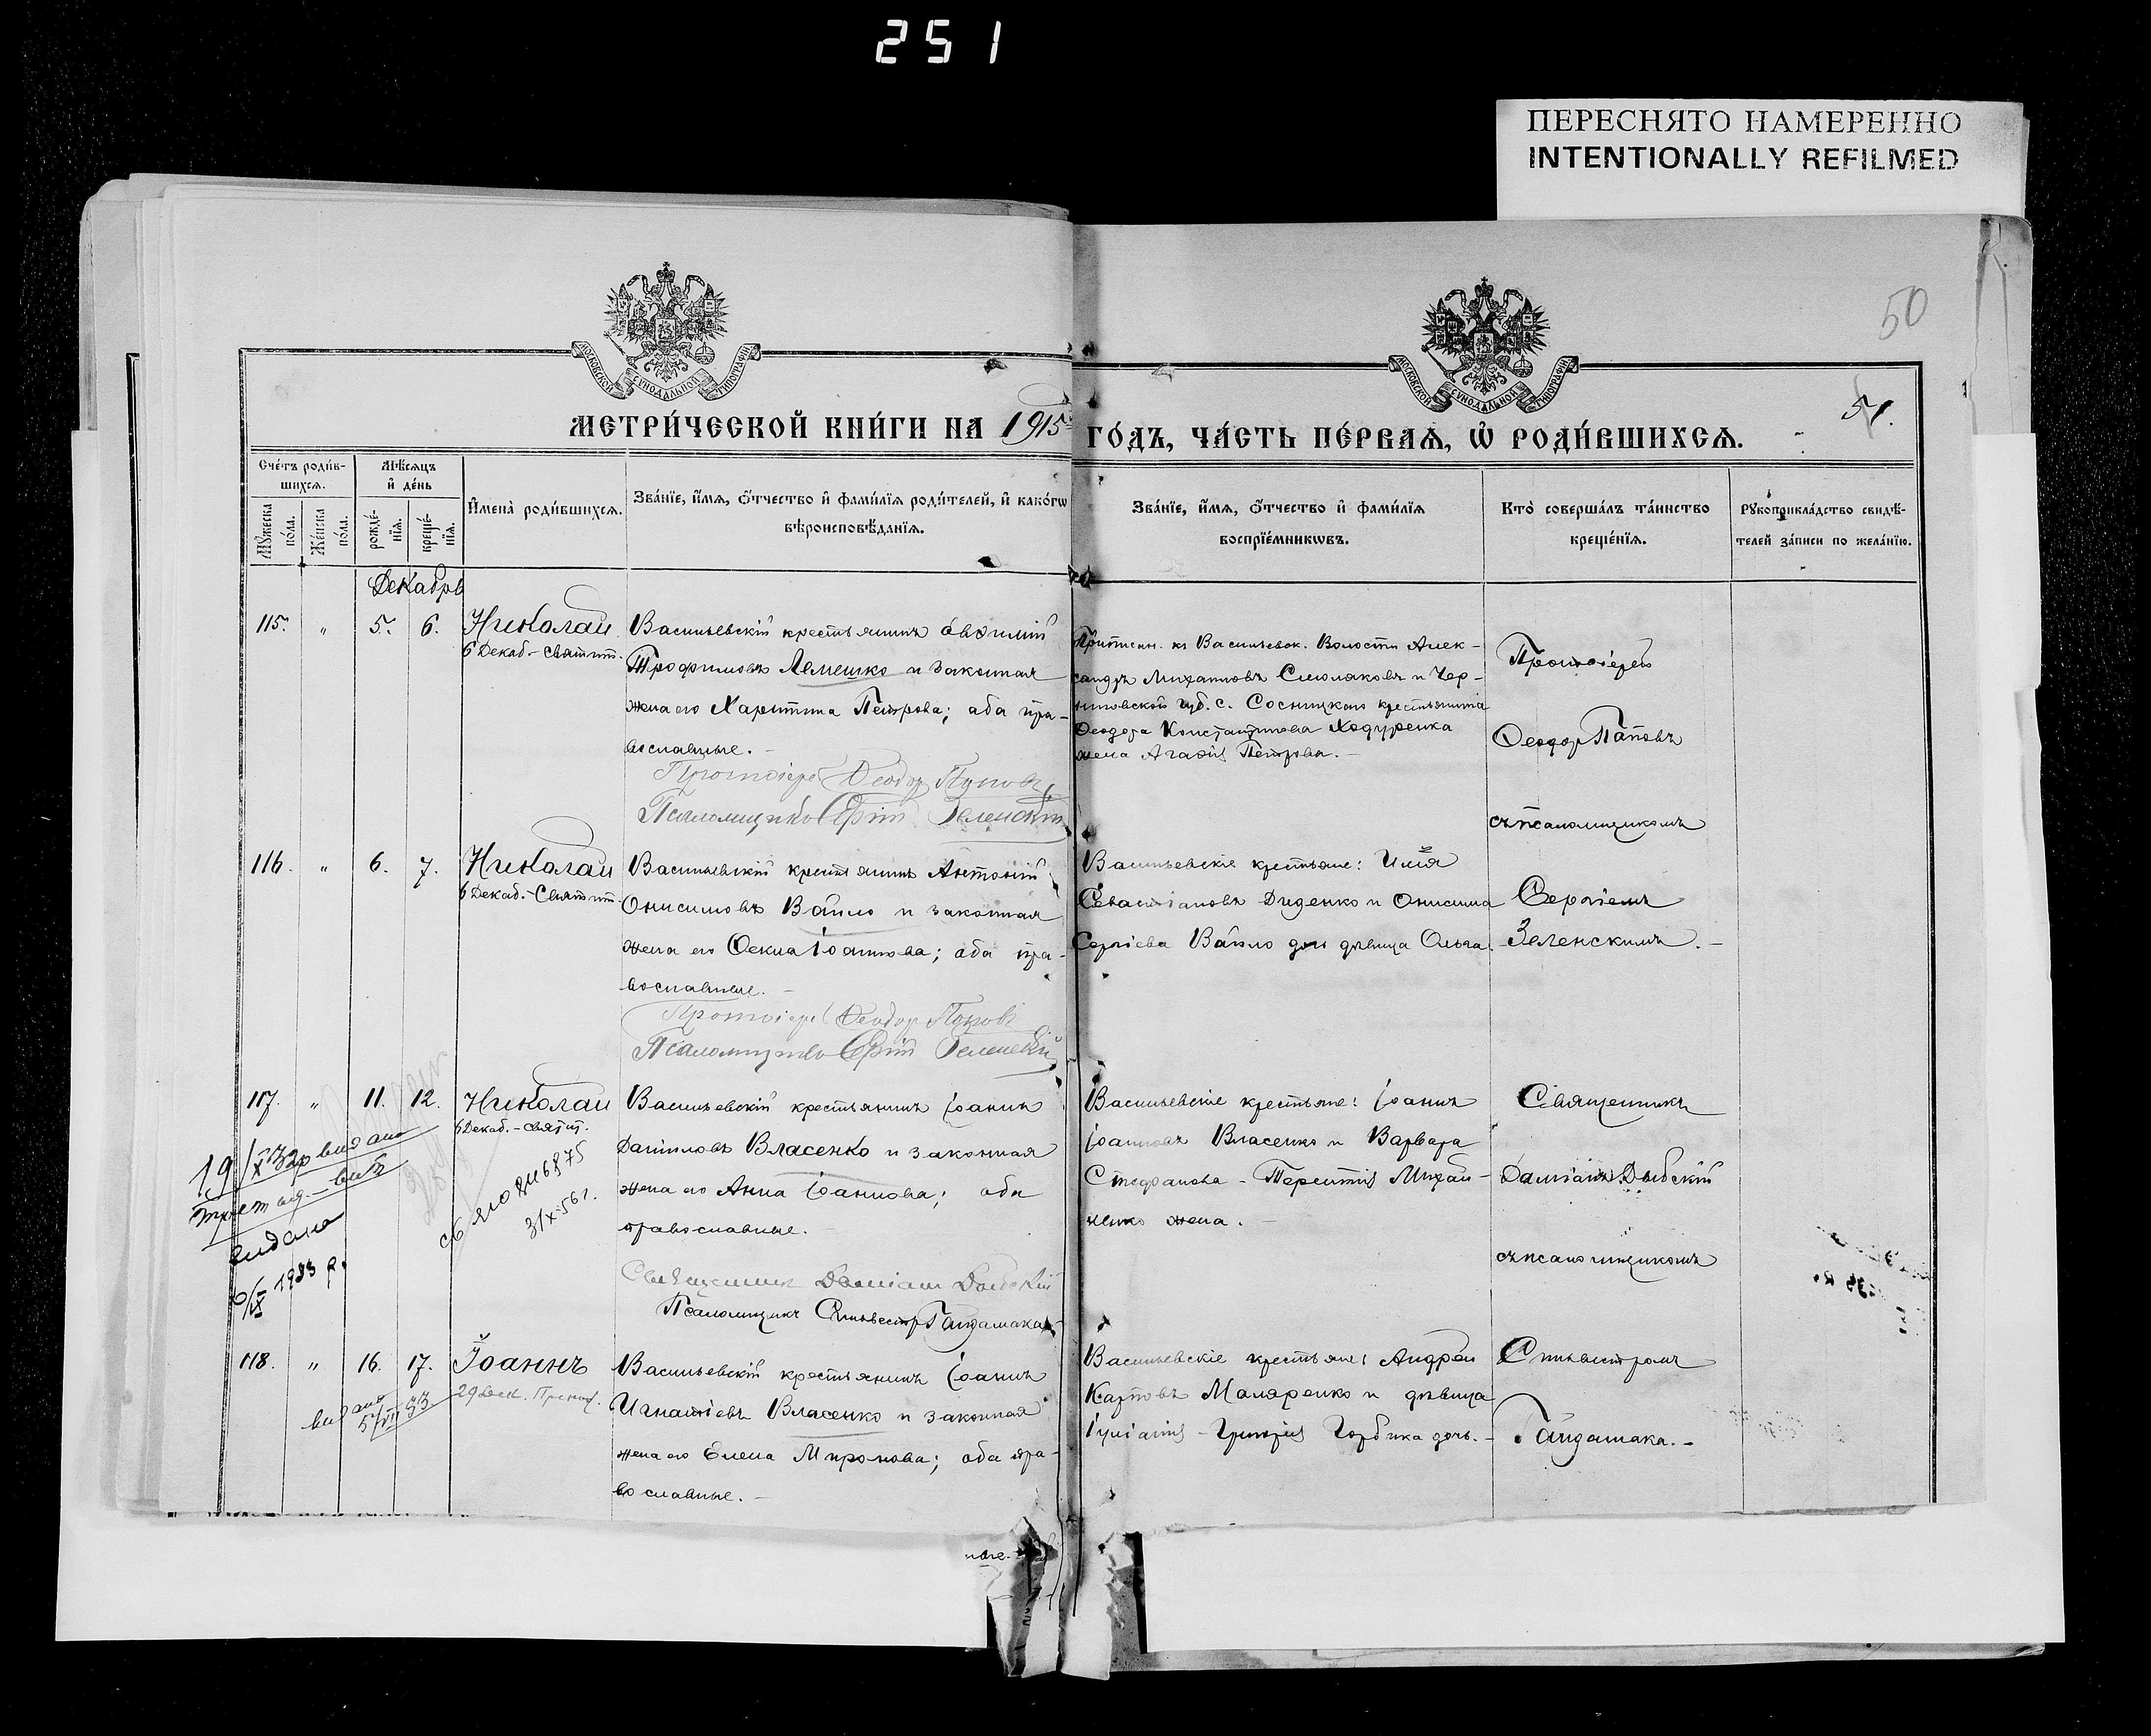 251
ПЕРЕСНЯТО НАМЕРЕННО
INTENTIONALLY REFILMED
50
51.
МОСКОВСКОЙ СѴНОДАЛЬНОЙ ТИПОГРАФІИ
МОСКОВСКОЙ СѴНОДАЛЬНОЙ ТИПОГРАФІИ
МЕТРИ́ЧЕСКОЙ КНИ́ГИ НА 1915 ГО́ДЪ, ЧА́СТЬ ПЕ́РВАѦ, Ѽ РОДИ́ВШИХСѦ.
Сче́тъ роди́в-
шихсѧ.
Мѣ́сѧцъ
и҆ де́нь
Мꙋ́жеска по́ла.
Же́нска по́ла.
рожде́-
нїѧ.
креще́-
нїѧ.
И҆мена̀ роди́вшихсѧ.
Зва́нїе, и҆́мѧ, ѻ҆́тчество и҆ фами́лїѧ роди́телей, и҆ како́гѡ
вѣроисповѣ́данїѧ.
Зва́нїе, и҆́мѧ, ѻ҆́тчество и҆ фами́лїѧ
воспрїе́мникѡвъ.
Кто̀ соверша́лъ та́инство
креще́нїѧ.
Рꙋкоприкла́дство свидѣ́-
телей за́писи по жела́нїю.
Декабрь
115. " 5. 6. Николай
6 Декаб.- Святит.
Васильевскій крестьянинъ Евѳимій
Трофимовъ Лемешко и законная
жена его Харитина Петрова; оба пра-
вославные.-
Протоіерей Ѳеодор Поповъ
Псаломщикъ Сергій Зеленскій
Приписн. къ Васильевск. Волости Алек-
сандръ Михайловъ Смоляковъ и Чер-
ниговской губ. с. Сосницкаго крестьянина
Ѳеодора Константинова Ходуренка
жена Агаѳія Петрова.-
Протоіерей
Ѳеодор Поповъ
съ псаломщикомъ
116. " 6. 7. Николай
6 Декаб.- Святит.
Васильевскій крестьянинъ Антоній
Онисимовъ Вайло и законная
жена его Ѳекла Іоаннова; оба пра-
вославные.-
Протоіерей Ѳеодор Поповъ
Псаломщикъ Сергій Зеленскій
Васильевскіе крестьяне: Илія
Севастіановъ Диденко и Онисима
Сергіева Вайло дочь дѣвица Ольга.
Сергіемъ
Зеленскимъ.-
117. " 11. 12. Николай
6 Декаб.- Святит.
Васильевскій крестьянинъ Іоаннъ
Даниловъ Власенко и законная
жена его Анна Іоаннова; оба
православные.
Священникъ Даміанъ Дыбскій
Псаломщикъ Сильвестръ Гайдамака.
Васильевскіе крестьяне: Іоаннъ
Іоанновъ Власенко и Варвара
Стефанова - Терентія Михай-
ленко жена.-
Священникъ
Даміанъ Дыбскій
съ псаломщикомъ
видано
1933 р.
3/X-56 г.
118. " 16. 17. Іоаннъ
Васильевскій крестьянинъ Іоаннъ
Игнатіевъ Власенко и законная
жена его Елена Миронова; оба пра-
вославные.-
Васильевскіе крестьяне: Андрей
Карповъ Маляренко и дѣвица
Іуліанія - Григорія Горбика дочь.-
Сильвестромъ
Гайдамака.-
видано
5/VII 33